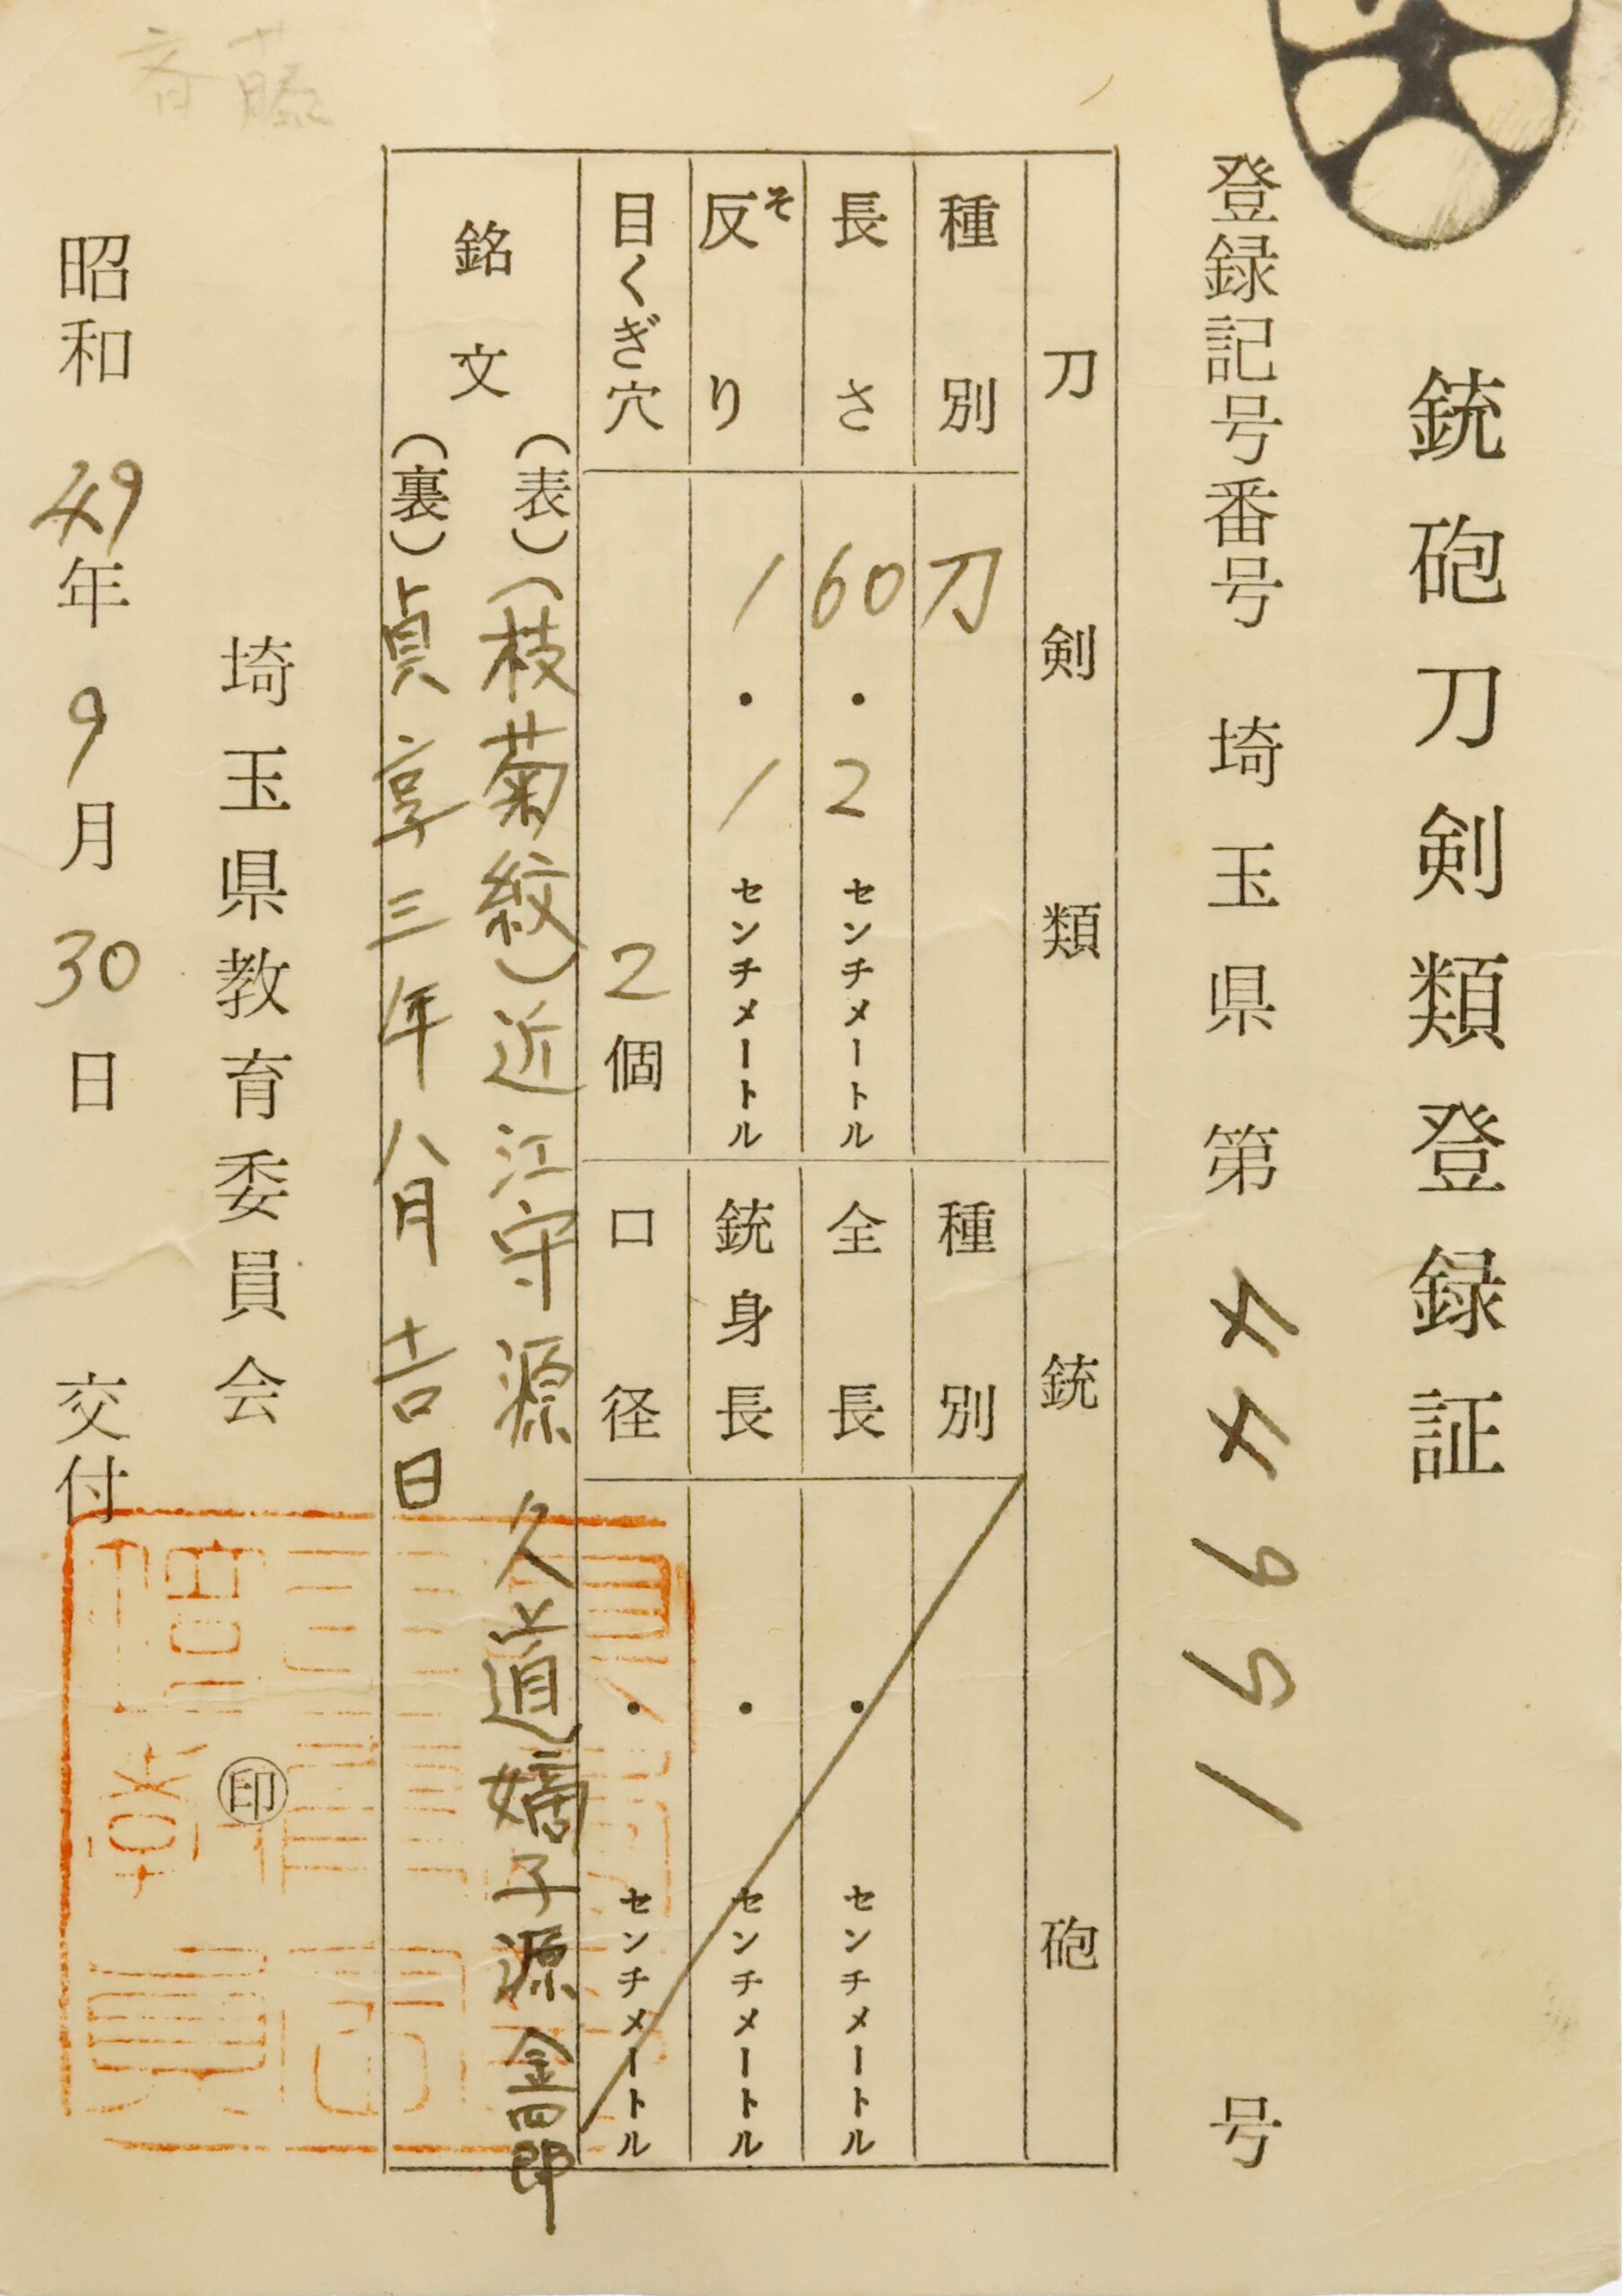 銃砲刀剣類登録証
登録記号番号 埼玉県 第44991号
刀剣類
種別 刀
長さ 60.2センチメートル
反り そ 1.1センチメートル
目くぎ穴 2個
銃砲
種別
全長 .センチメートル
銃身長 .センチメートル
口径 .センチメートル
銘文
(表)(枝菊紋)近江守源久道嫡子源金四郎
(裏)貞享三年八月吉日
埼玉県教育委員会 ㊞
昭和49年9月30日 交付
斉藤